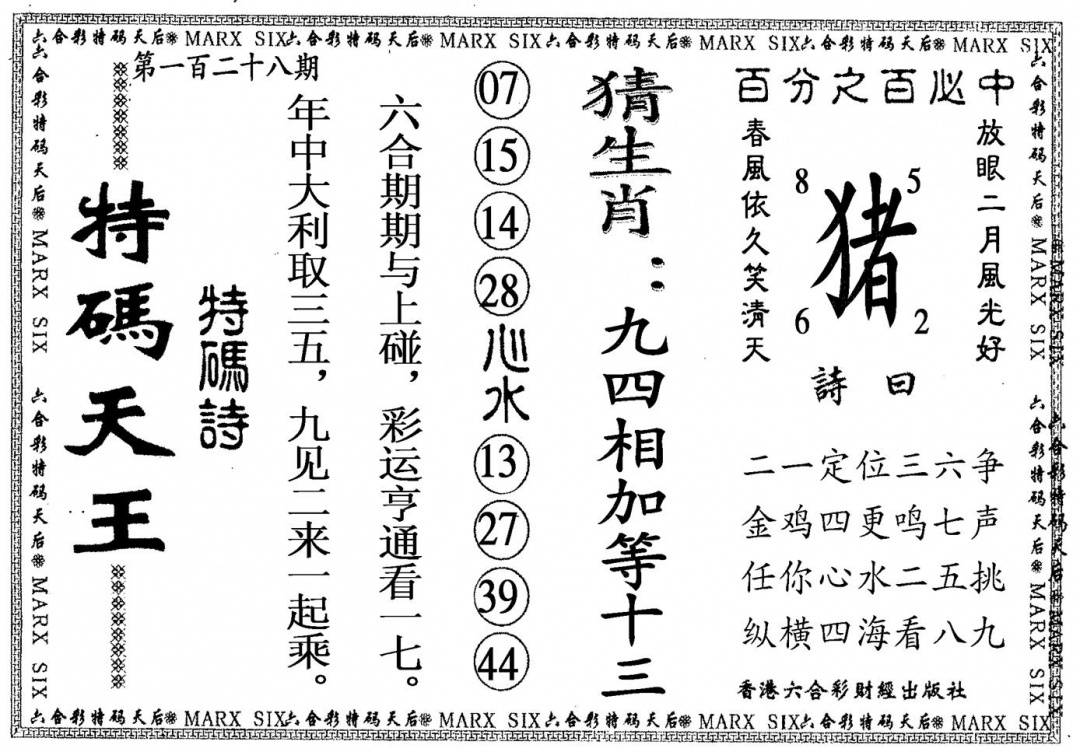 六合彩特码天后❊ MARX SIX六合彩特码天后❊ MARX SIX六合彩特码天后❊ MARX SIX六合彩特码天后❊ MARX SIX
第一百二十八期
特碼天王
特碼詩
年中大利取三五，九见二来一起乘。
六合期期与上碰，彩运亨通看一七。
07
15
14
28
心水
13
27
39
44
猜生肖：九四相加等十三
百分之百必中
放眼二月風光好
春風依久笑清天
8 5
猪
6 2
詩曰
二一定位三六争
金鸡四更鸣七声
任你心水二五挑
纵横四海看八九
香港六合彩財經出版社
六合彩特码天后❊ MARX SIX 六合彩特码天后❊ MARX SIX
六合彩特码天后❊ MARX SIX 六合彩特码天后❊ MARX SIX
❊ MARX SIX 六合彩特码天后❊ MARX SIX
六合彩特码天后❊ MARX SIX六合彩特码天后❊ MARX SIX六合彩特码天后❊ MARX SIX六合彩特码天后❊ MARX SIX